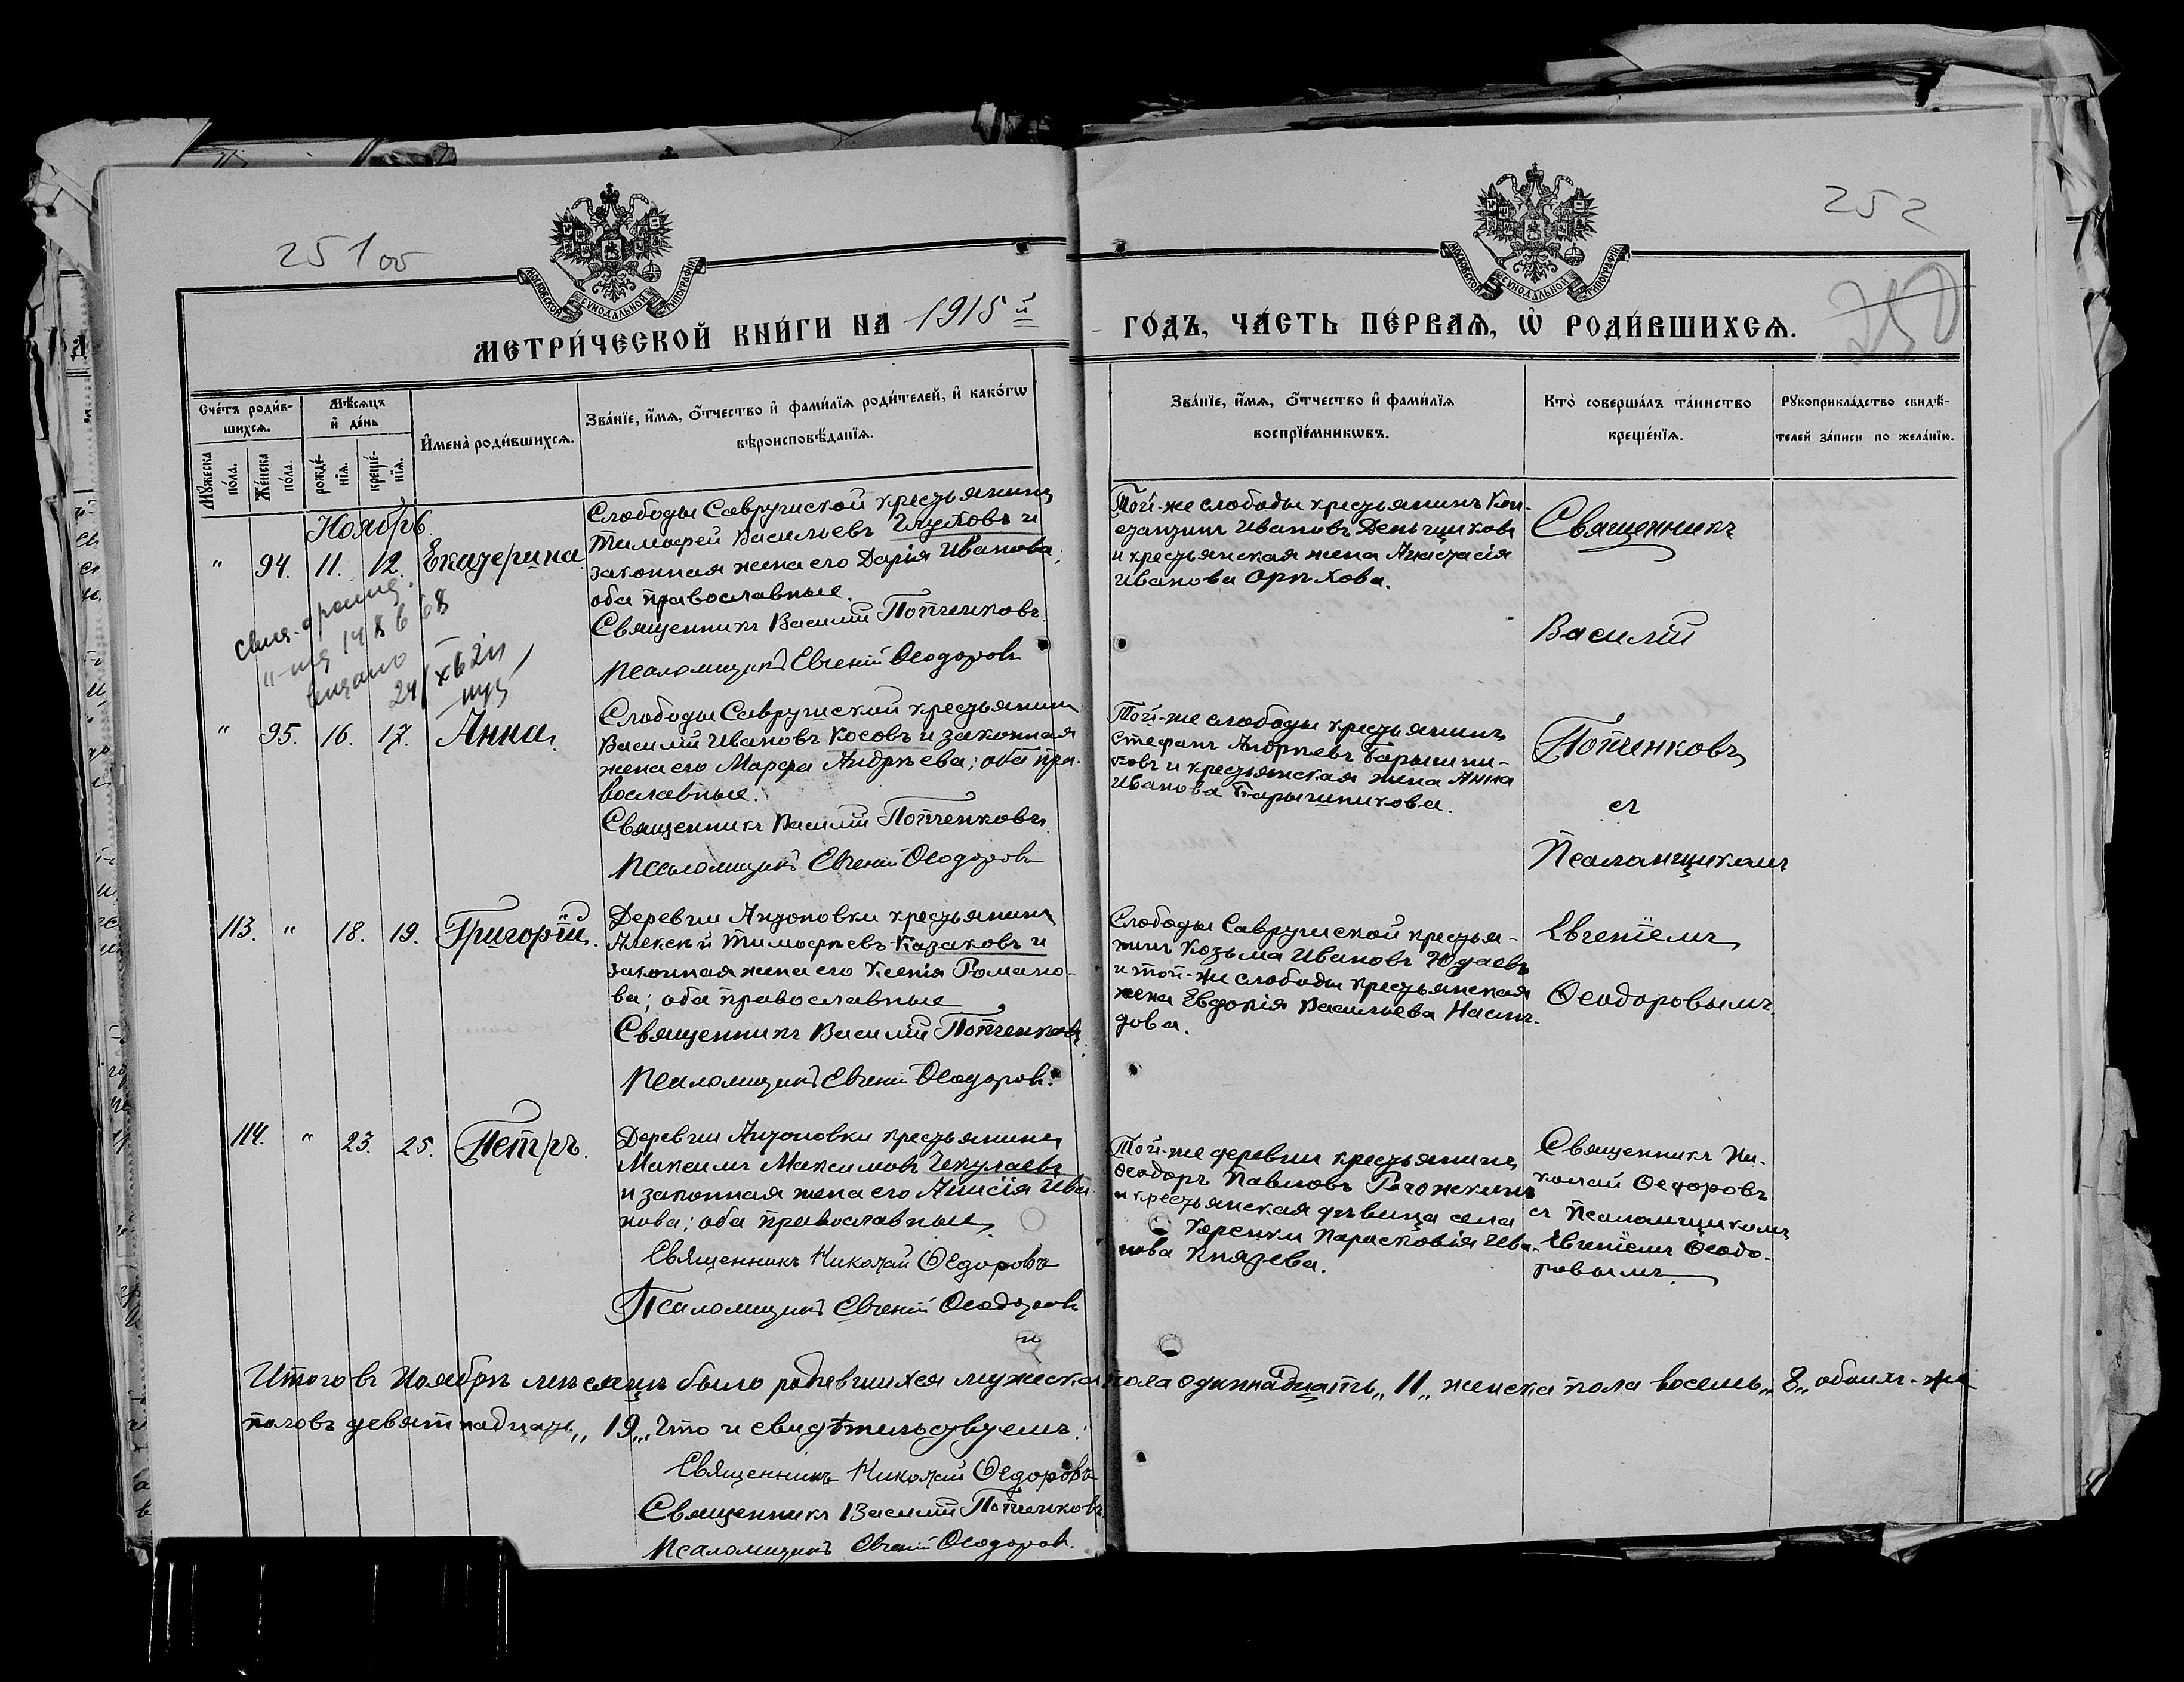 251 об
252
250
МОСКОВСКОЙ СѴНОДАЛЬНОЙ ТИПОГРАФІИ
МОСКОВСКОЙ СѴНОДАЛЬНОЙ ТИПОГРАФІИ
МЕТРИ́ЧЕСКОЙ КНИ́ГИ НА 1915й ГО́ДЪ, ЧА́СТЬ ПЕ́РВАѦ, Ѡ҆ РОДИ́ВШИХСѦ.
Сче́тъ роди́в-
шихсѧ.
Мꙋ́жеска
по́ла.
Же́нска
по́ла.
Мѣ́сѧцъ
и҆ де́нь
рожде́-
нїѧ.
креще́-
нїѧ.
И҆мена̀ роди́вшихсѧ.
Зва́нїе, и҆́мѧ, ѻ҆́тчество и҆ фами́лїѧ роди́телей, и҆ како́гѡ
вѣроисповѣ́данїѧ.
Зва́нїе, и҆́мѧ, ѻ҆́тчество и҆ фами́лїѧ
воспрїе́мникѡвъ.
Кто̀ соверша́лъ та́инство
креще́нїѧ.
Рꙋкоприкла́дство свидѣ́-
телей за́писи по жела́нїю.
Ноябрь
„ 94. 11. 12. Екатерина
Слободы Саврушской крестьянинъ
Тимофей Васильевъ Глуховъ и
законная жена его Дарія Иванова;
оба православные.
Священникъ Василій Попченковъ
Псаломщикъ Евгеній Ѳеодоровъ
Той-же слободы крестьянинъ Кон-
стантинъ Ивановъ Деньщиковъ
и крестьянская жена Анастасія
Иванова Орѣхова.
Священникъ
Василій
Попченковъ
съ
Псаломщикомъ
Евгеніемъ
Ѳеодоровымъ
24/X 62 г
„ 95. 16. 17. Анна.
Слободы Саврушской крестьянинъ
Василій Ивановъ Косовъ и законная
жена его Марфа Андрѣева; оба пра-
вославные.
Священникъ Василій Попченковъ
Псаломщикъ Евгеній Ѳеодоровъ
Той-же слободы крестьянинъ
Стефанъ Андрѣевъ Барышни-
ковъ и крестьянская жена Анна
Иванова Барышникова.
113. „ 18. 19. Григорій.
Деревни Антоновки крестьянинъ
Алексѣй Тимофѣевъ Казаковъ и
законная жена его Ксенія Романо-
ва; оба православные
Священникъ Василій Попченковъ
Псаломщикъ Евгеній Ѳеодоровъ.
Слободы Саврушской крестья-
нинъ Козьма Ивановъ Юдаевъ
и той-же слободы крестьянская
жена Евдокія Васильева
114. „ 23. 25. Петръ.
Деревни Антоновки крестьянинъ
Максимъ Максимовъ Чекулаевъ
и законная жена его Анисія Ива-
нова; оба православные.
Священникъ Николай Ѳедоровъ
Псаломщикъ Евгеній Ѳеодоровъ
Той-же деревни крестьянинъ
Ѳеодоръ Павловъ
и крестьянская дѣвица села
Парасковія Ива-
нова Князева.
Священникъ Ни-
колай Ѳедоровъ
съ Псаломщикомъ
Евгеніемъ Ѳеодо-
ровымъ.
Итого въ Ноябрѣ мѣсяцѣ было родившихся мужеска пола одиннадцать „11„ женска пола восемь „8„ обоихъ-же
половъ девятнадцать „19„. Что и свидѣтельствуемъ:
Священникъ Николай Ѳедоровъ
Священникъ Василій Попченковъ
Псаломщикъ Евгеній Ѳеодоровъ.